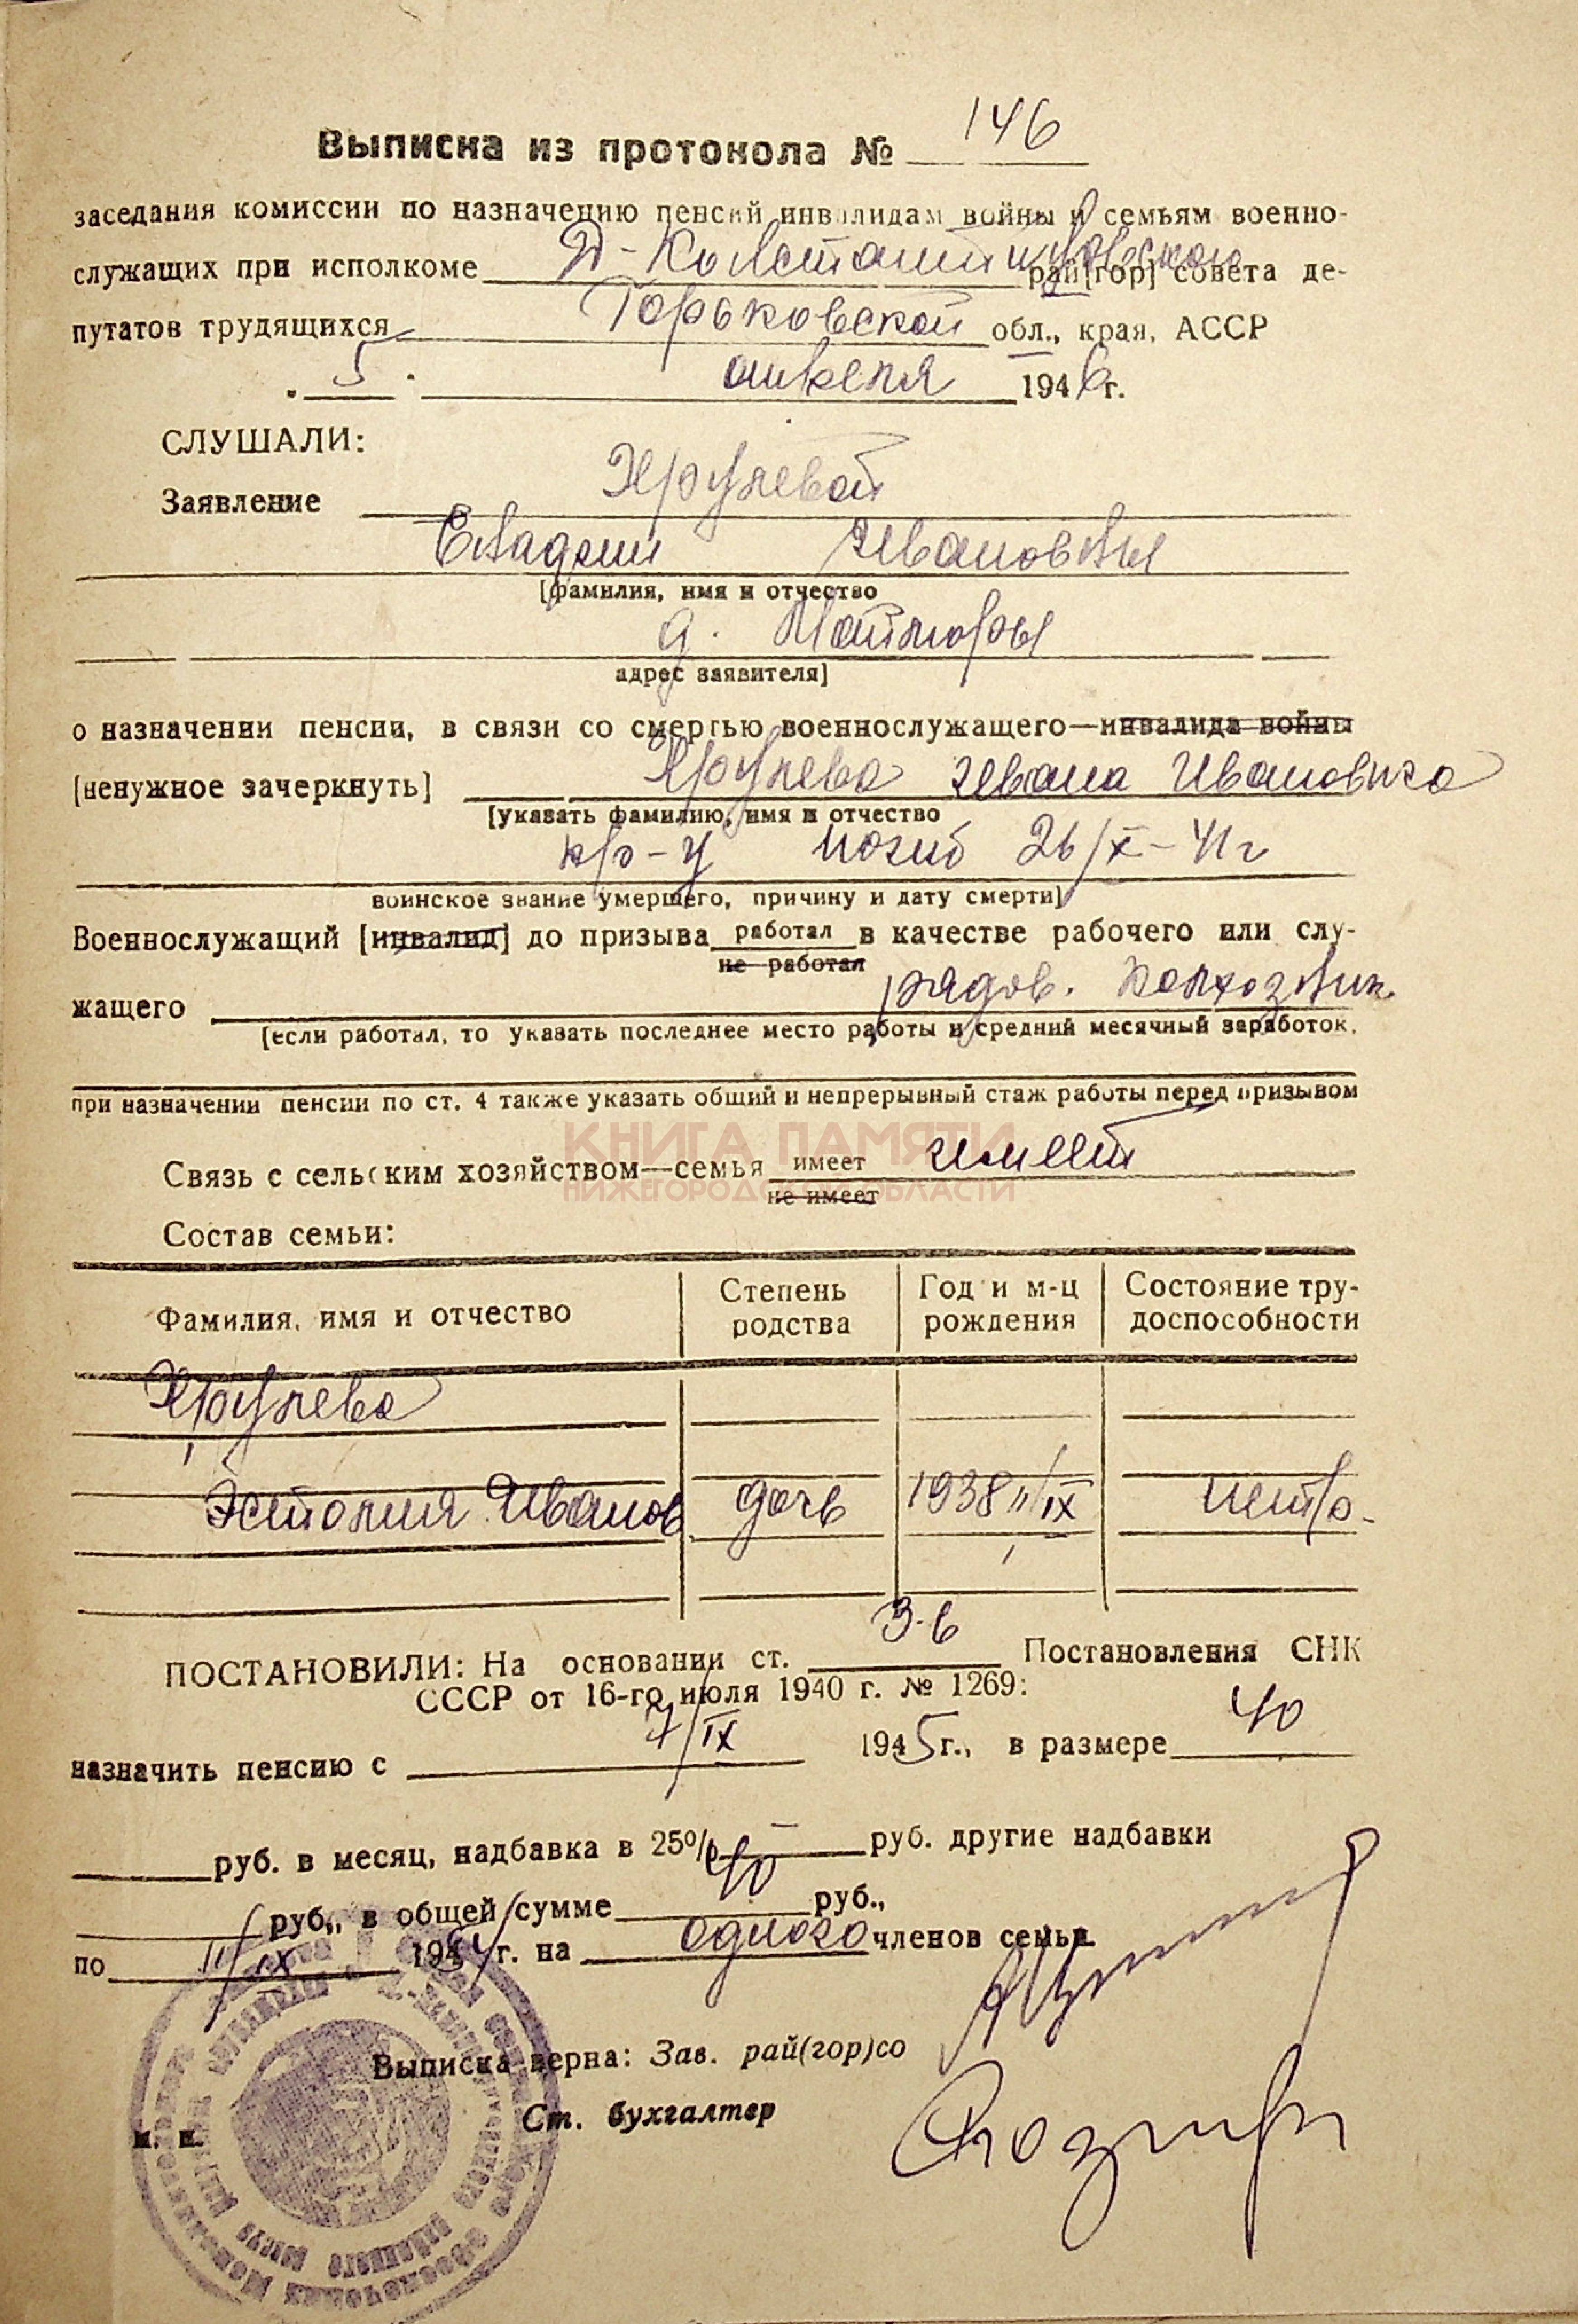 Выписка из протокола № 146
заседания комиссии по назначению пенсий инвалидам войны и семьям военно-
служащих при исполкоме Д-Константиновском рай[гор] совета де-
путатов трудящихся Горьковской обл., края, АССР
„ 5 " апреля 1946 г.
СЛУШАЛИ:
Заявление Хрулевой
Ивановны
[фамилия, имя и отчество
д.
адрес заявителя]
о назначении пенсии, в связи со смертью военнослужащего—инвалида войны
[ненужное зачеркнуть] Хрулева Ивана Ивановича
[указать фамилию, имя и отчество
кр-ц погиб 26/X-41г
воинское звание умершего, причину и дату смерти]
Военнослужащий [инвалид] до призыва работал в качестве рабочего или слу-
не работал
жащего рядов. колхозник
[если работал, то указать последнее место работы и средний месячный заработок,
при назначении пенсии по ст. 4 также указать общий и непрерывный стаж работы перед призывом
КНИГА ПАМЯТИ
Связь с сельским хозяйством—семья имеет имеет
НИЖЕГОРОДСКОЙ ОБЛАСТИ
не имеет
Состав семьи:
Фамилия, имя и отчество Степень родства Год и м-ц рождения Состояние тру-доспособности
Хрулева
Эстолия Иванов дочь 1938 11/IX нетр.
ПОСТАНОВИЛИ: На основании ст. 3-б Постановления СНК
СССР от 16-го июля 1940 г. № 1269:
назначить пенсию с 7/IX 1945 г., в размере 40
руб. в месяц, надбавка в 25% — руб. другие надбавки
руб., в общей сумме 40 руб.,
по 11/IX 1954 г. на одного членов семьи
Выписка верна: Зав. рай(гор)со
Ст. бухгалтер
м. п.